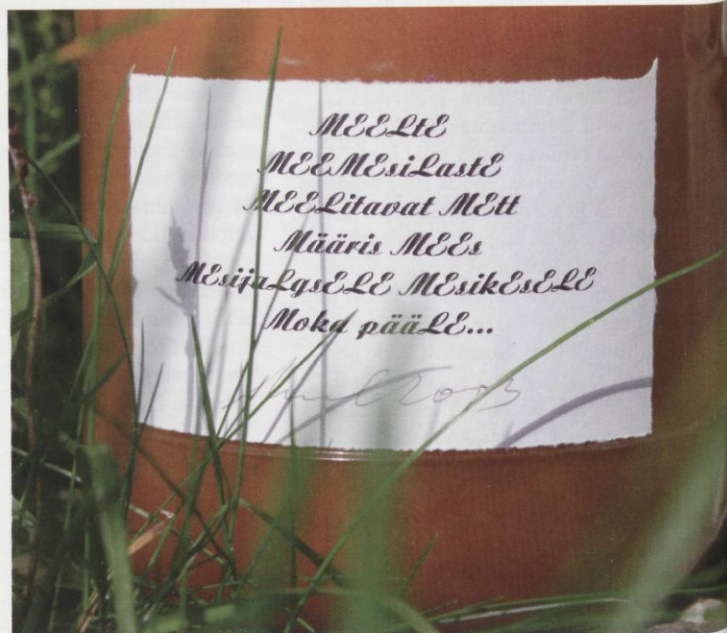 MEELtE
MEEMEsiLastE
MEELitavat MEtt
Määris MEEs
MEsijaLgsELE MEsikEsELE
Moka pääLE...